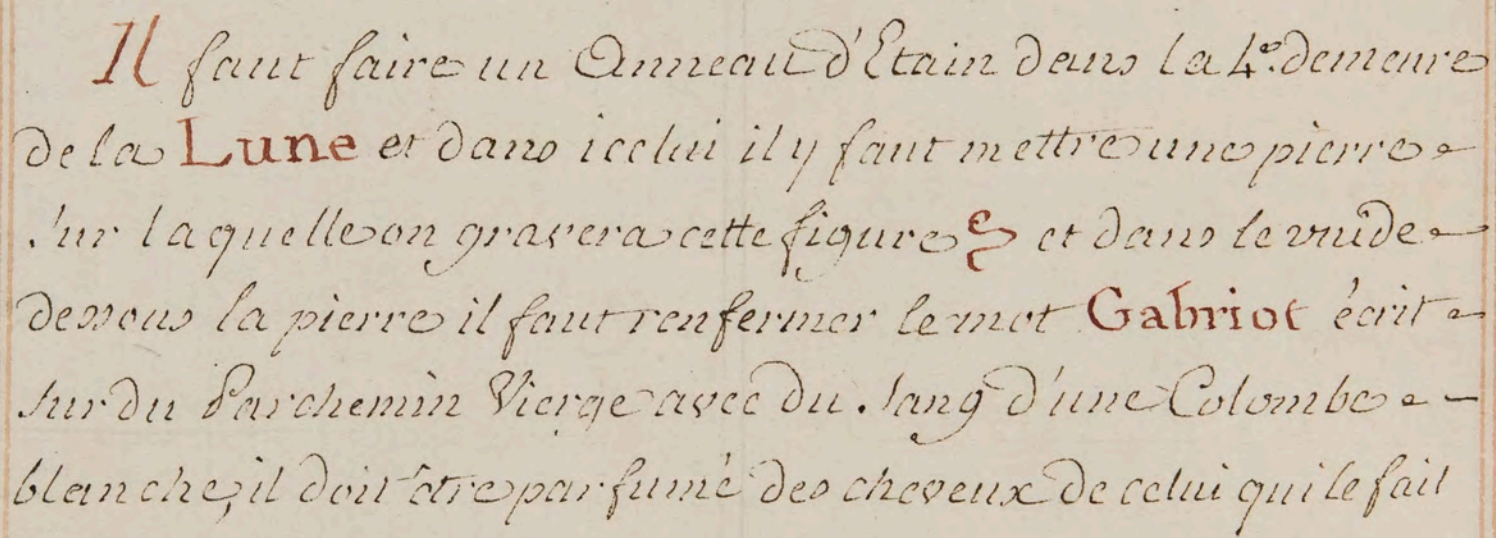 Il faut faire un Anneau d'Etain dans la 4e. demeure
de la Lune et dans icelui il y faut mettre une pierre
sur laquelle on gravera cette figure et dans le vuide
dessous la pierre il faut renfermer le mot Gabriot écrit
sur du Parchemin Vierge avec du sang d'une Colombe
blanche, il doit être parfumé des cheveux de celui qui le fait